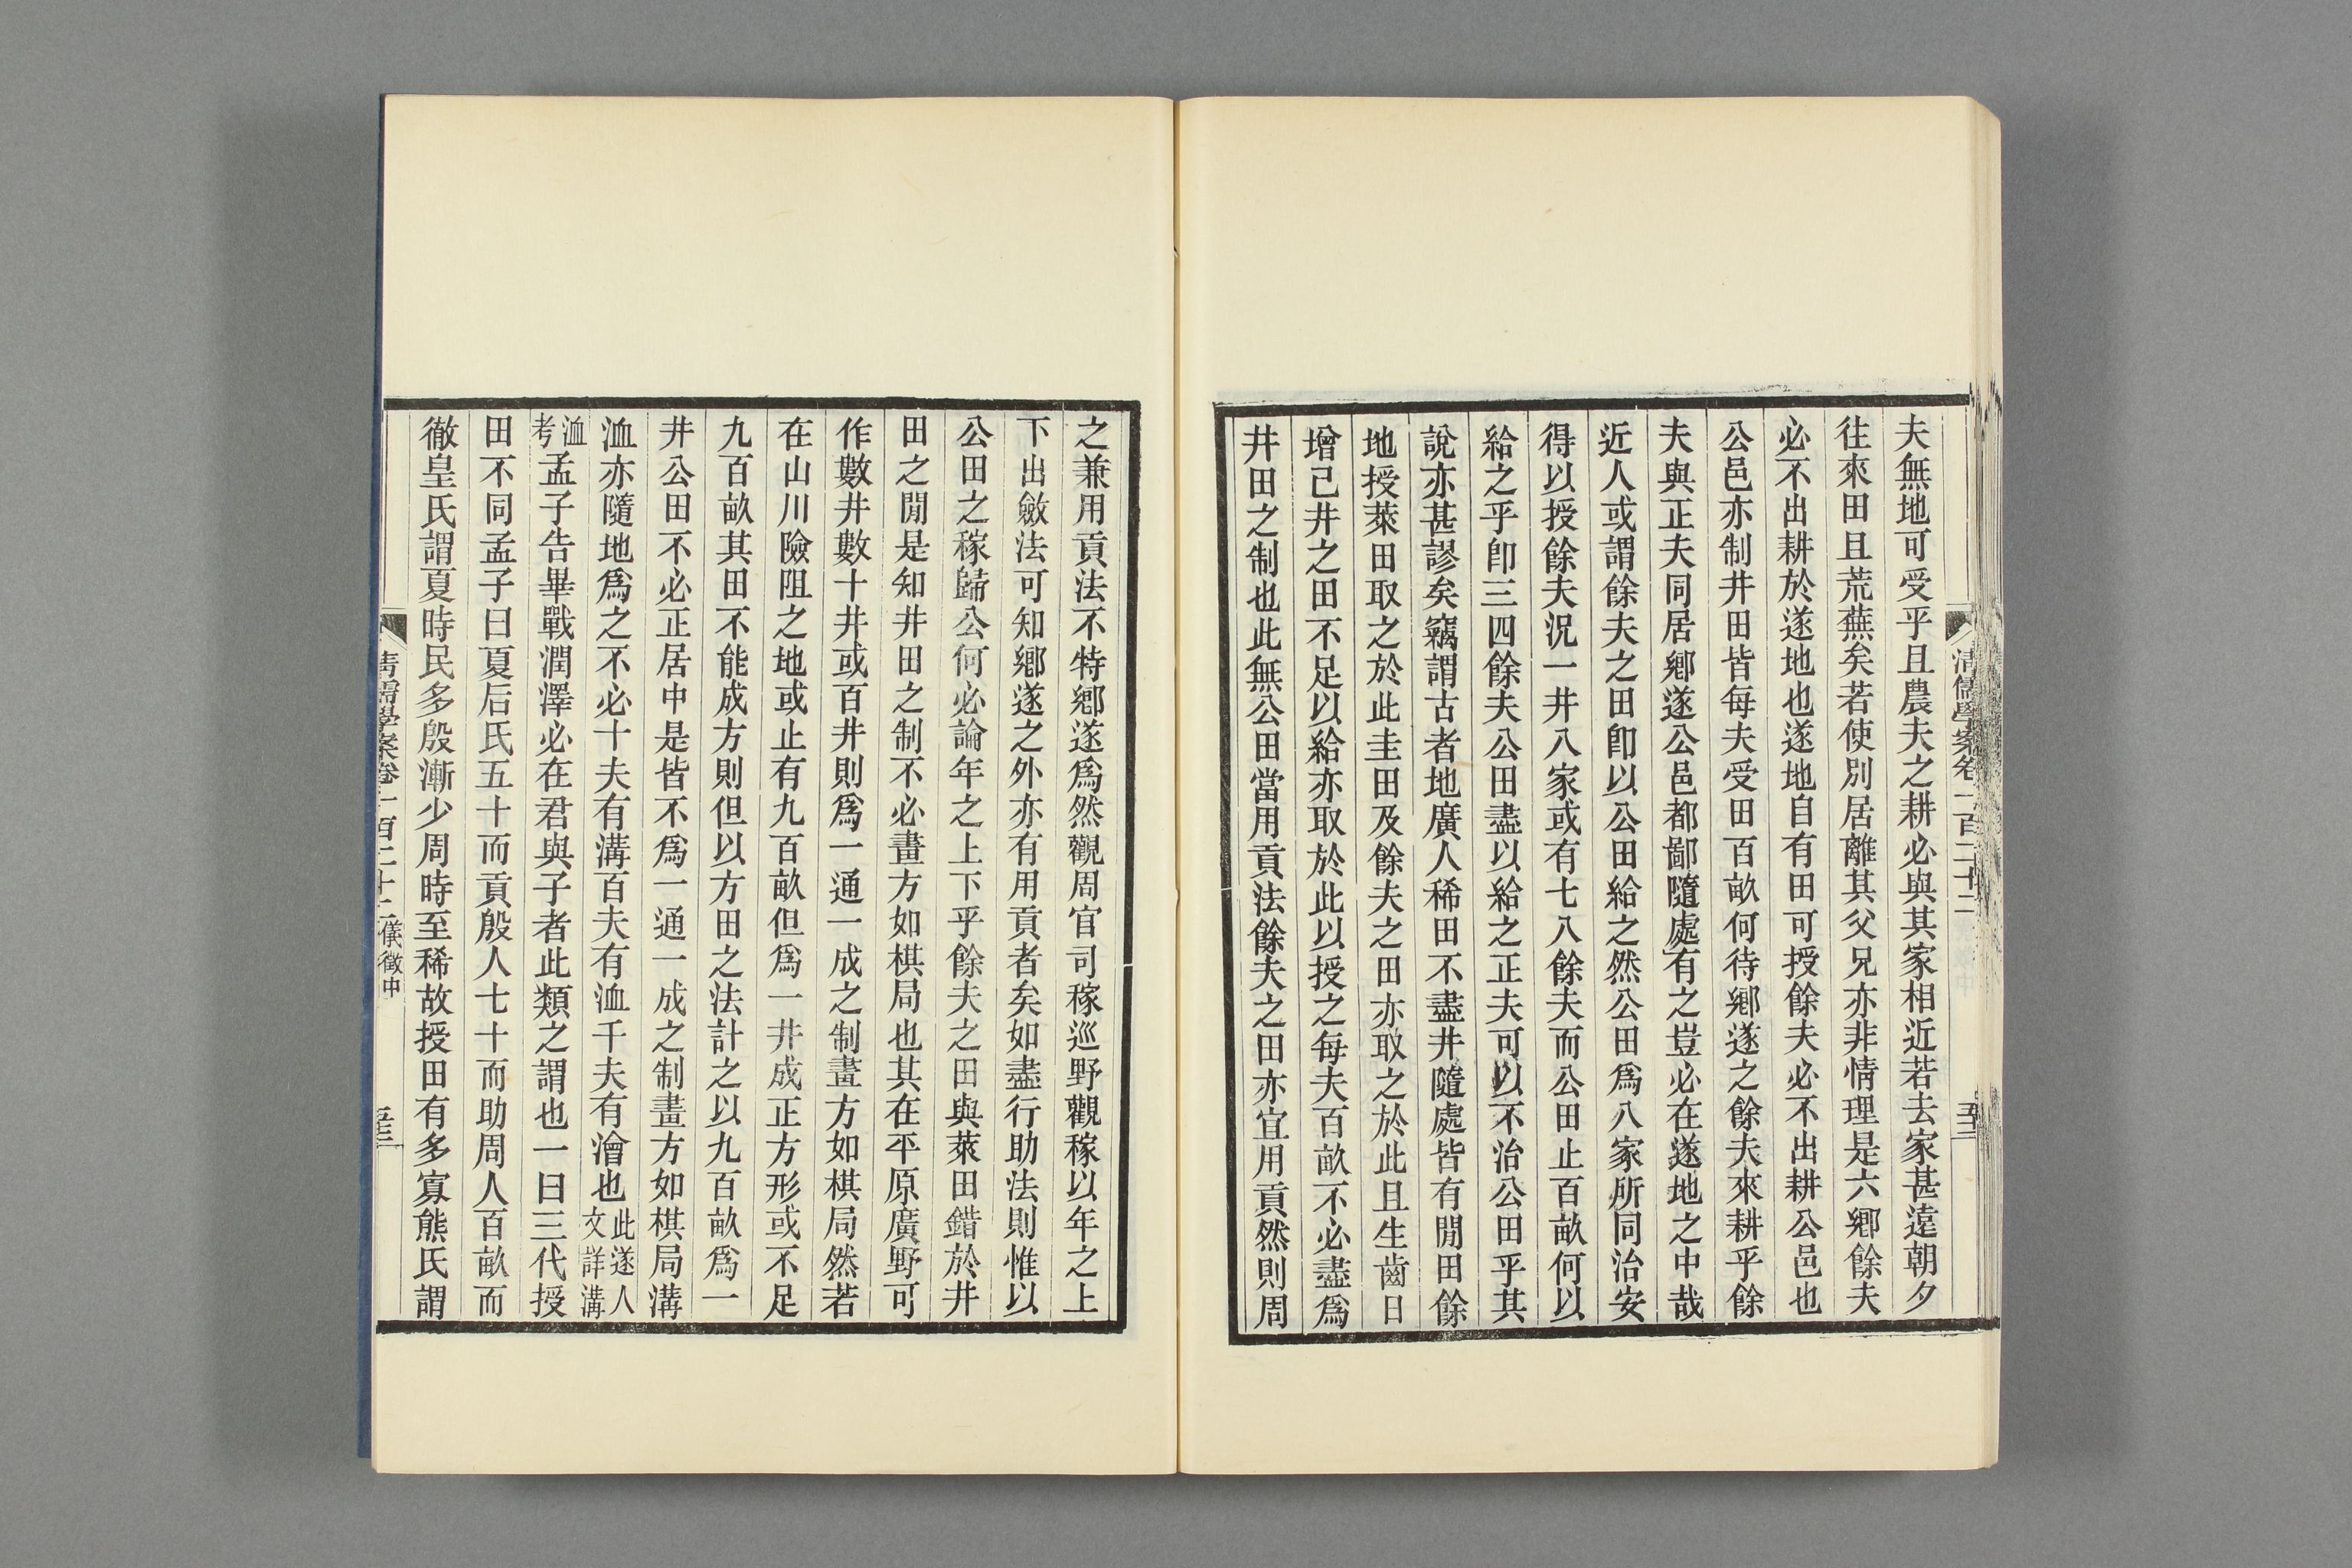 清儒學案卷一百二十二
夫無地可受乎且農夫之耕必與其家相近若去家甚遠朝夕
往來田且荒蕪矣若使別居離其父兄亦非情理是六鄉餘夫
必不出耕於遂地也遂地自有田可授餘夫必不出耕公邑也
公邑亦制井田皆每夫受田百畝何待鄉遂之餘夫來耕乎餘
夫與正夫同居鄉遂公邑都鄙隨處有之豈必在遂地之中哉
近人或謂餘夫之田卽以公田給之然公田爲八家所同治安
得以授餘夫況一井八家或有七八餘夫而公田止百畝何以
給之乎卽三四餘夫公田盡以給之正夫可以不治公田乎其
說亦甚謬矣竊謂古者地廣人稀田不盡井隨處皆有閒田餘
地授萊田取之於此圭田及餘夫之田亦取之於此且生齒日
增已井之田不足以給亦取於此以授之每夫百畝不必盡爲
井田之制也此無公田當用貢法餘夫之田亦宜用貢然則周
之兼用貢法不特鄉遂爲然觀周官司稼巡野觀稼以年之上
下出斂法可知鄉遂之外亦有用貢者矣如盡行助法則惟以
公田之稼歸公何必論年之上下乎餘夫之田與萊田錯於井
田之閒是知井田之制不必畫方如棋局也其在平原廣野可
作數井數十井或百井則爲一通一成之制畫方如棋局然若
在山川險阻之地或止有九百畝但爲一井成正方形或不足
九百畝其田不能成方則但以方田之法計之以九百畝爲一
井公田不必正居中是皆不爲一通一成之制畫方如棋局溝
洫亦隨地爲之不必十夫有溝百夫有洫千夫有澮也此遂人文詳溝
洫考孟子告畢戰潤澤必在君與子者此類之謂也一曰三代授
田不同孟子曰夏后氏五十而貢殷人七十而助周人百畝而
徹皇氏謂夏時民多殷漸少周時至稀故授田有多寡熊氏謂
清儒學案卷一百二十二儀徵中 五三